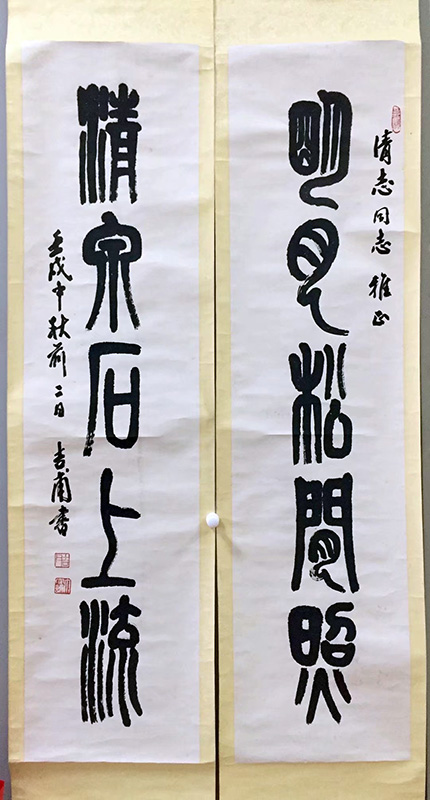 清志同志 雅正
明月松間照
清泉石上流
壬戌中秋前二日 吉甫書